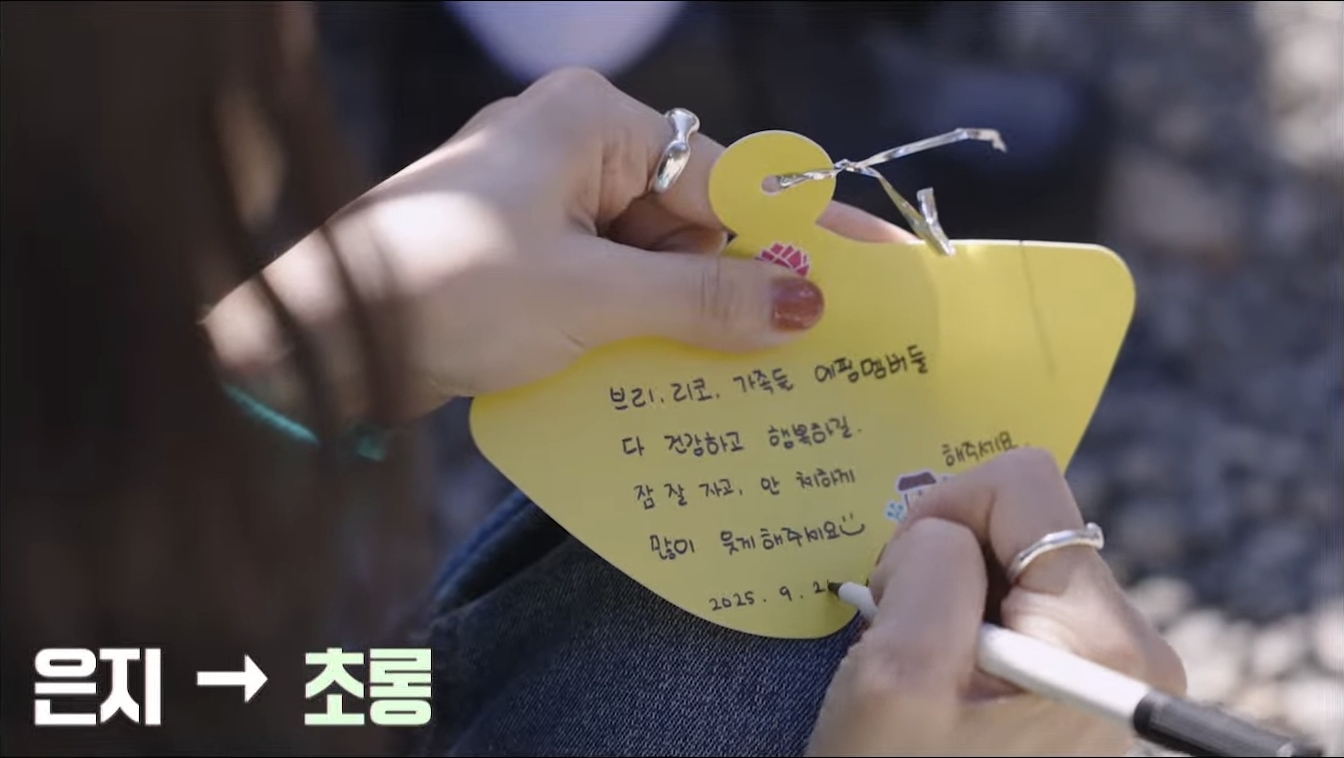 브리, 리코, 가족들 에핑멤버들
다 건강하고 행복하길.
잠 잘 자고, 안 체하게
많이 웃게해주세요
해주세요.
2025. 9. 2
은지 → 초롱